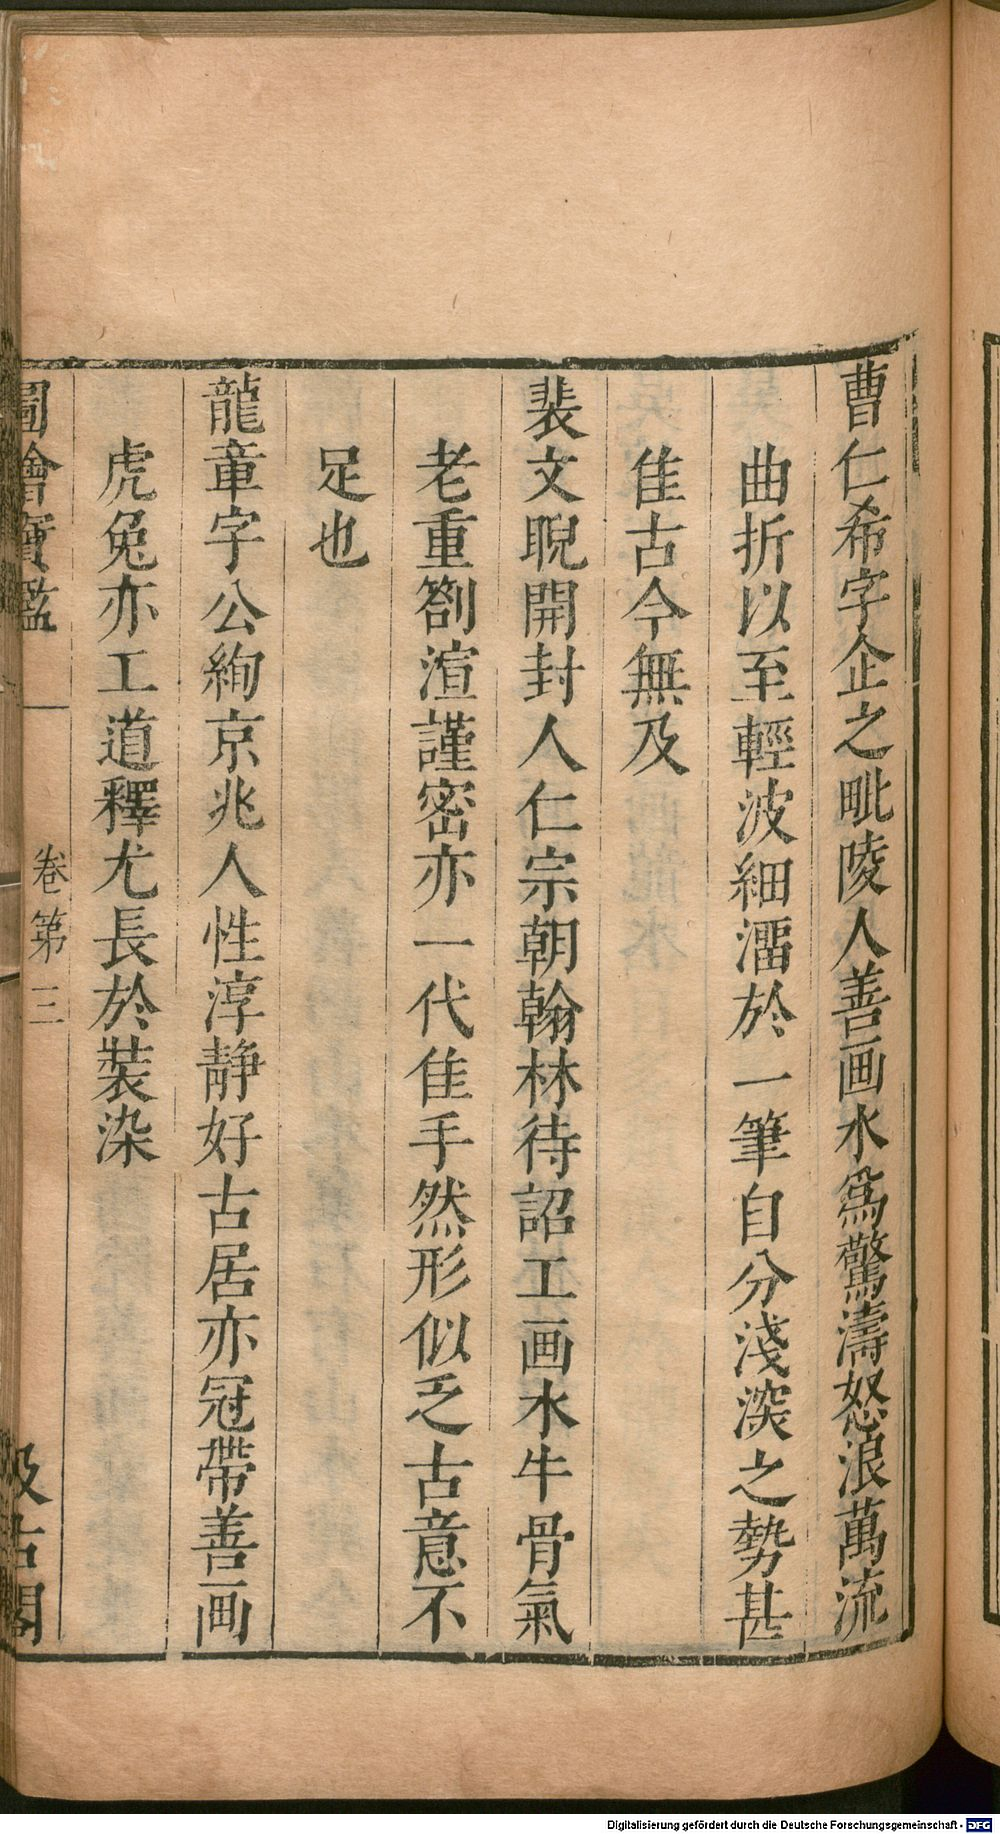 曹仁希字企之毗陵人善画水為驚濤怒浪萬流
曲折以至輕波細溜於一筆自分淺深之勢甚
佳古今無及
裴文睨開封人仁宗朝翰林待詔工画水牛骨氣
老重劄渲謹密亦一代佳手然形似乏古意不
足也
龍章字公絢京兆人性淳静好古居亦冠帶善画
虎兔亦工道釋尤長於裝染
圖繪寳鑑
卷第三
汲古閣
Digitalisierung gefördert durch die Deutsche Forschungsgemeinschaft - DFG